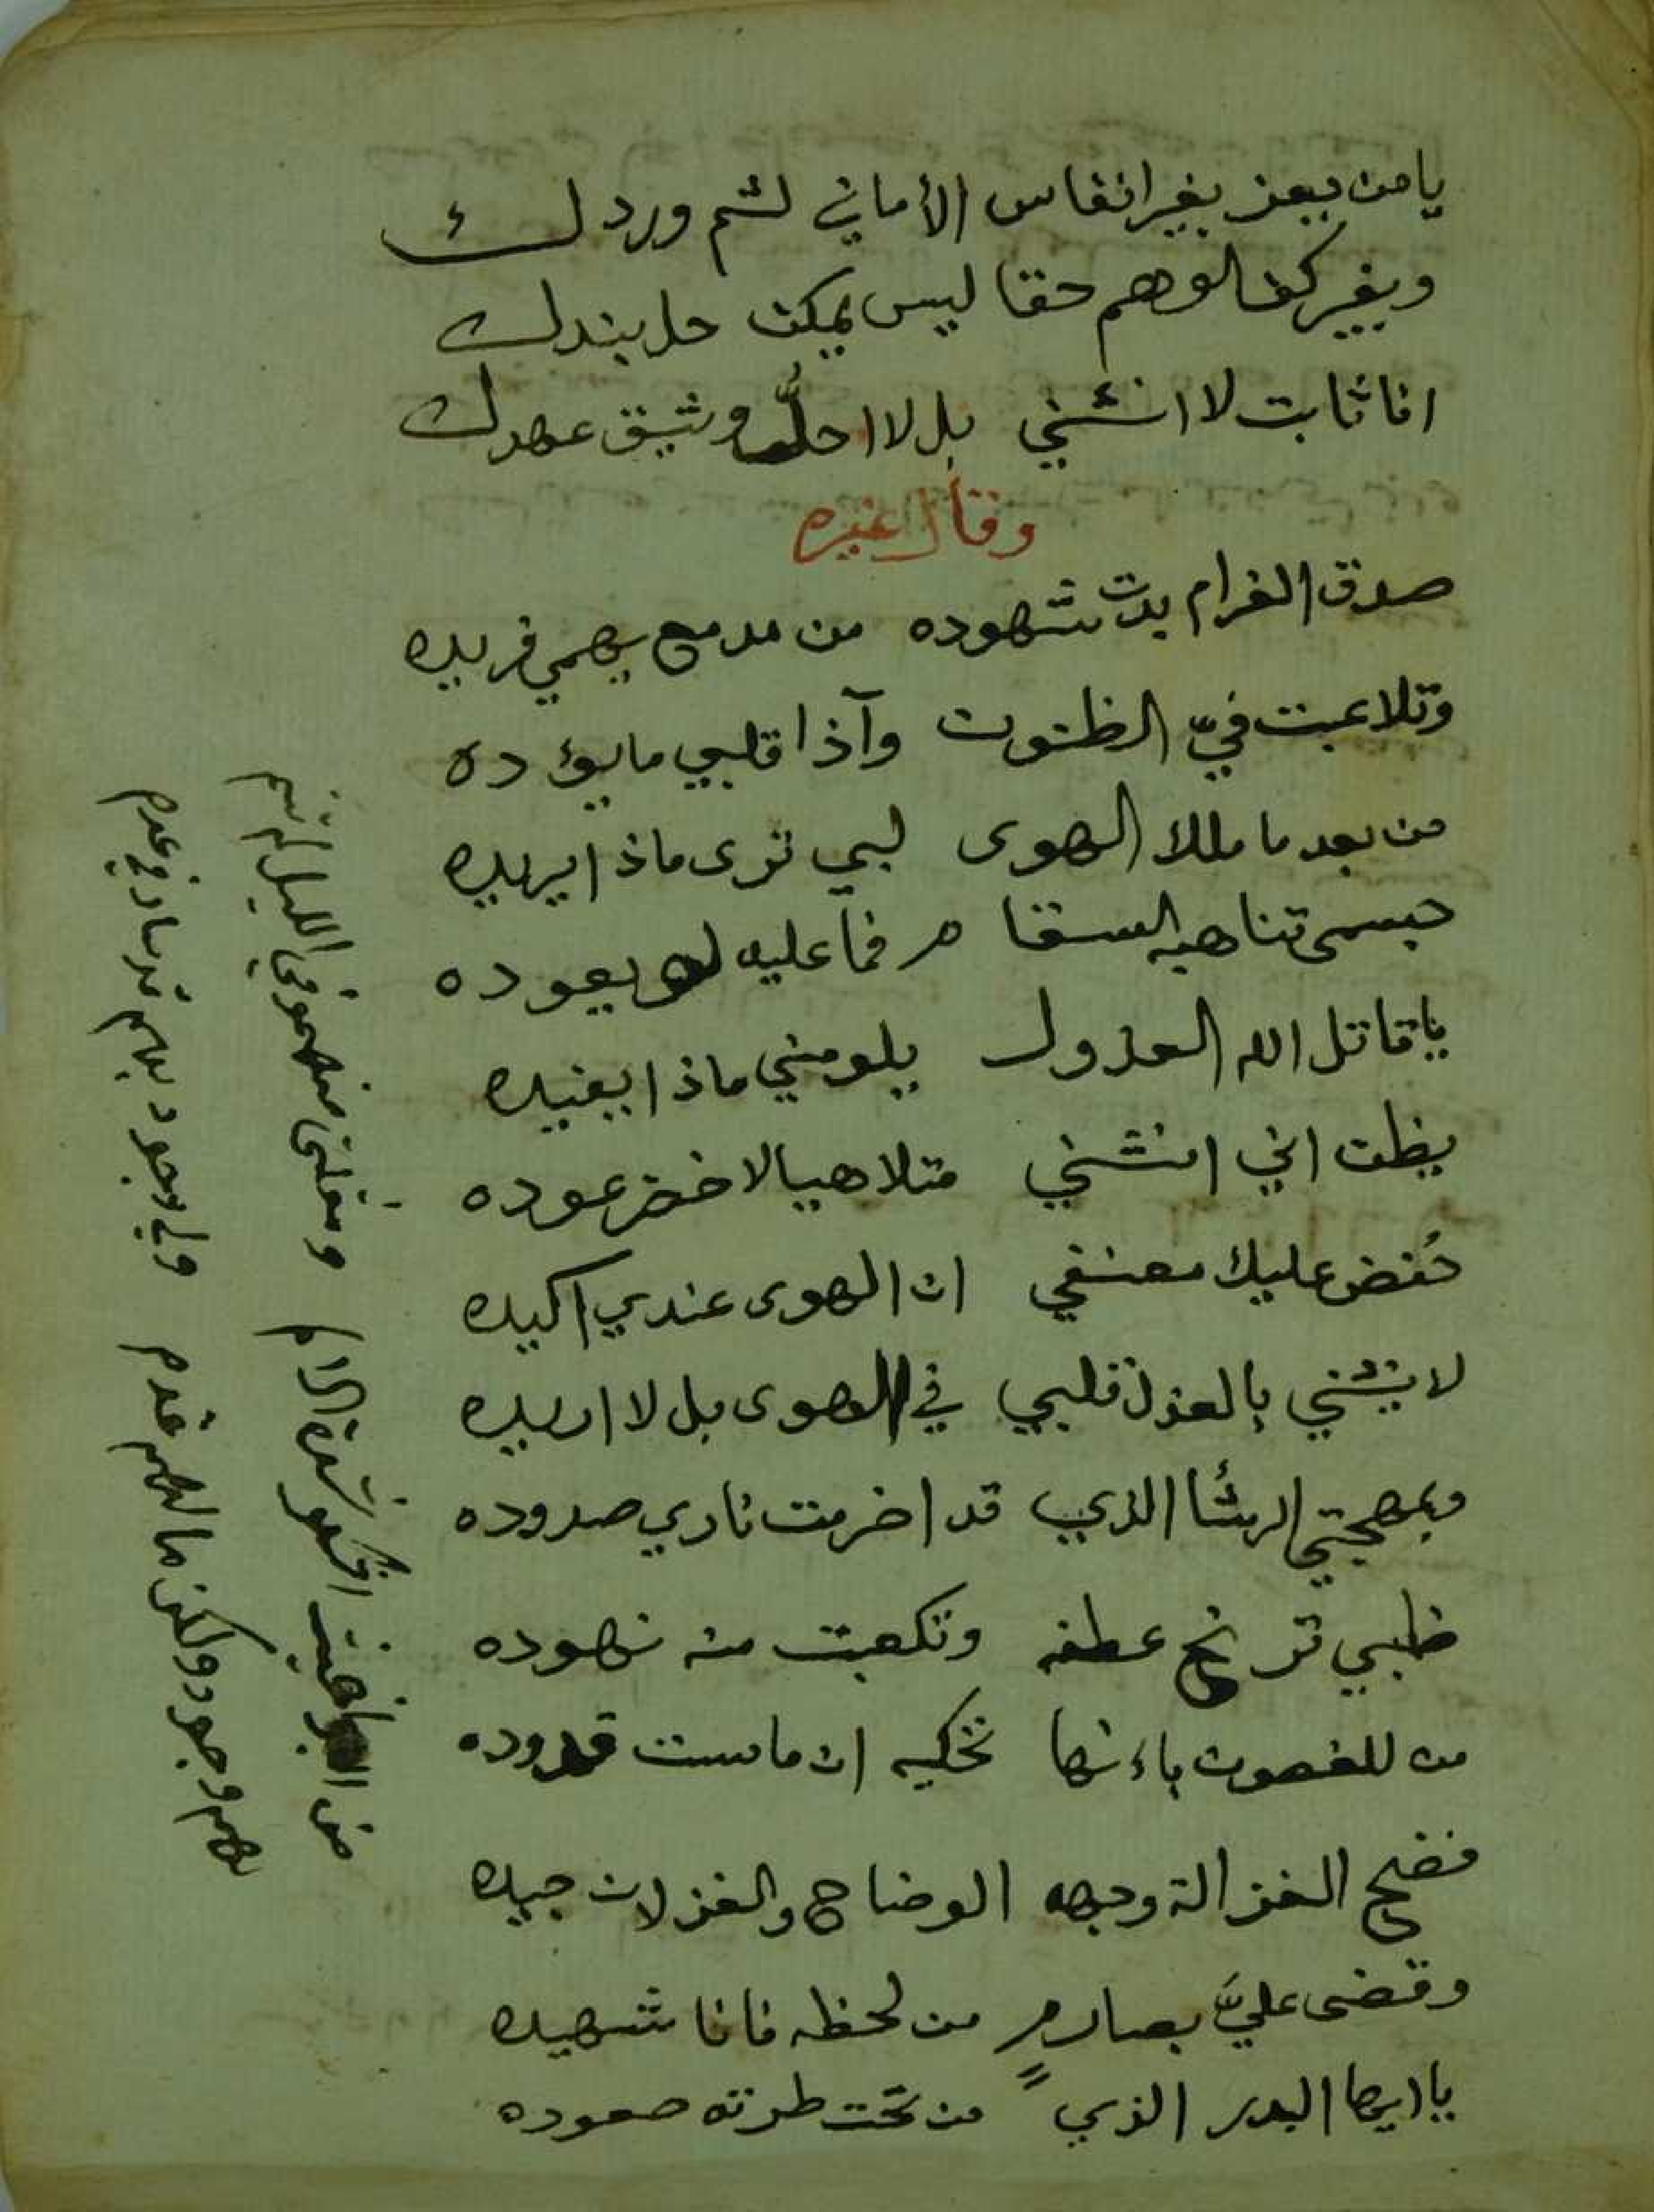 يا من يعز بغير انفاس الأماني لثم وردك
وبغير كف الوهم حقا ليس يمكن حل بندك
انا ثابت لا انثني بل لا احلُّ وثيق عهدك
وقال غيره
صدق الغرام بدت شهوده من مدمع يهمي فريده
وتلاعبت فيّ الظنون وآذا قلبي ما يؤده
من بعد ما ملك الهوى لبي ترى ماذا يريده
جسمي تناهبه السقام فما عليه لو يعوده
يا قاتل الله العذول يلومني ماذا يفيده
يظن اني انثني متلاهيا لا خضر عوده
خفض عليك معنفي ان الهوى عندي اكيده
لا ينثني بالعذل قلبي في الهوى بل لا اريده
وبمهجتي الرشأ الذي قد اضرمت ناري صدوده
ظبي ترنح عطفه وتكعبت منه نهوده
من للغصون باءنها تحكيه ان ماست قدوده
فضح الغزالة وجهه الوضاح والغزلان جيده
وقضى عليّ بصارمٍ من لحظه فانا شهيده
يا ايها البدر الذي من تحت طرته صعوده
من البراغيث اشكو شدة الالم ومقلتي منهمو في الليل لم تنم
لهم وجود ولكن ما لهم عدم ولي وجود بهم قد صار في عدم